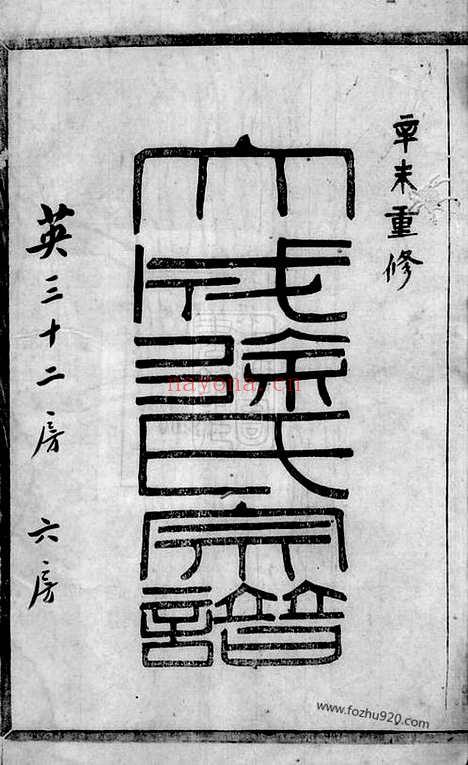 辛未重修
大成徐氏宗譜
英三十二房 六房
nayona.cn
www.fozhu920.com